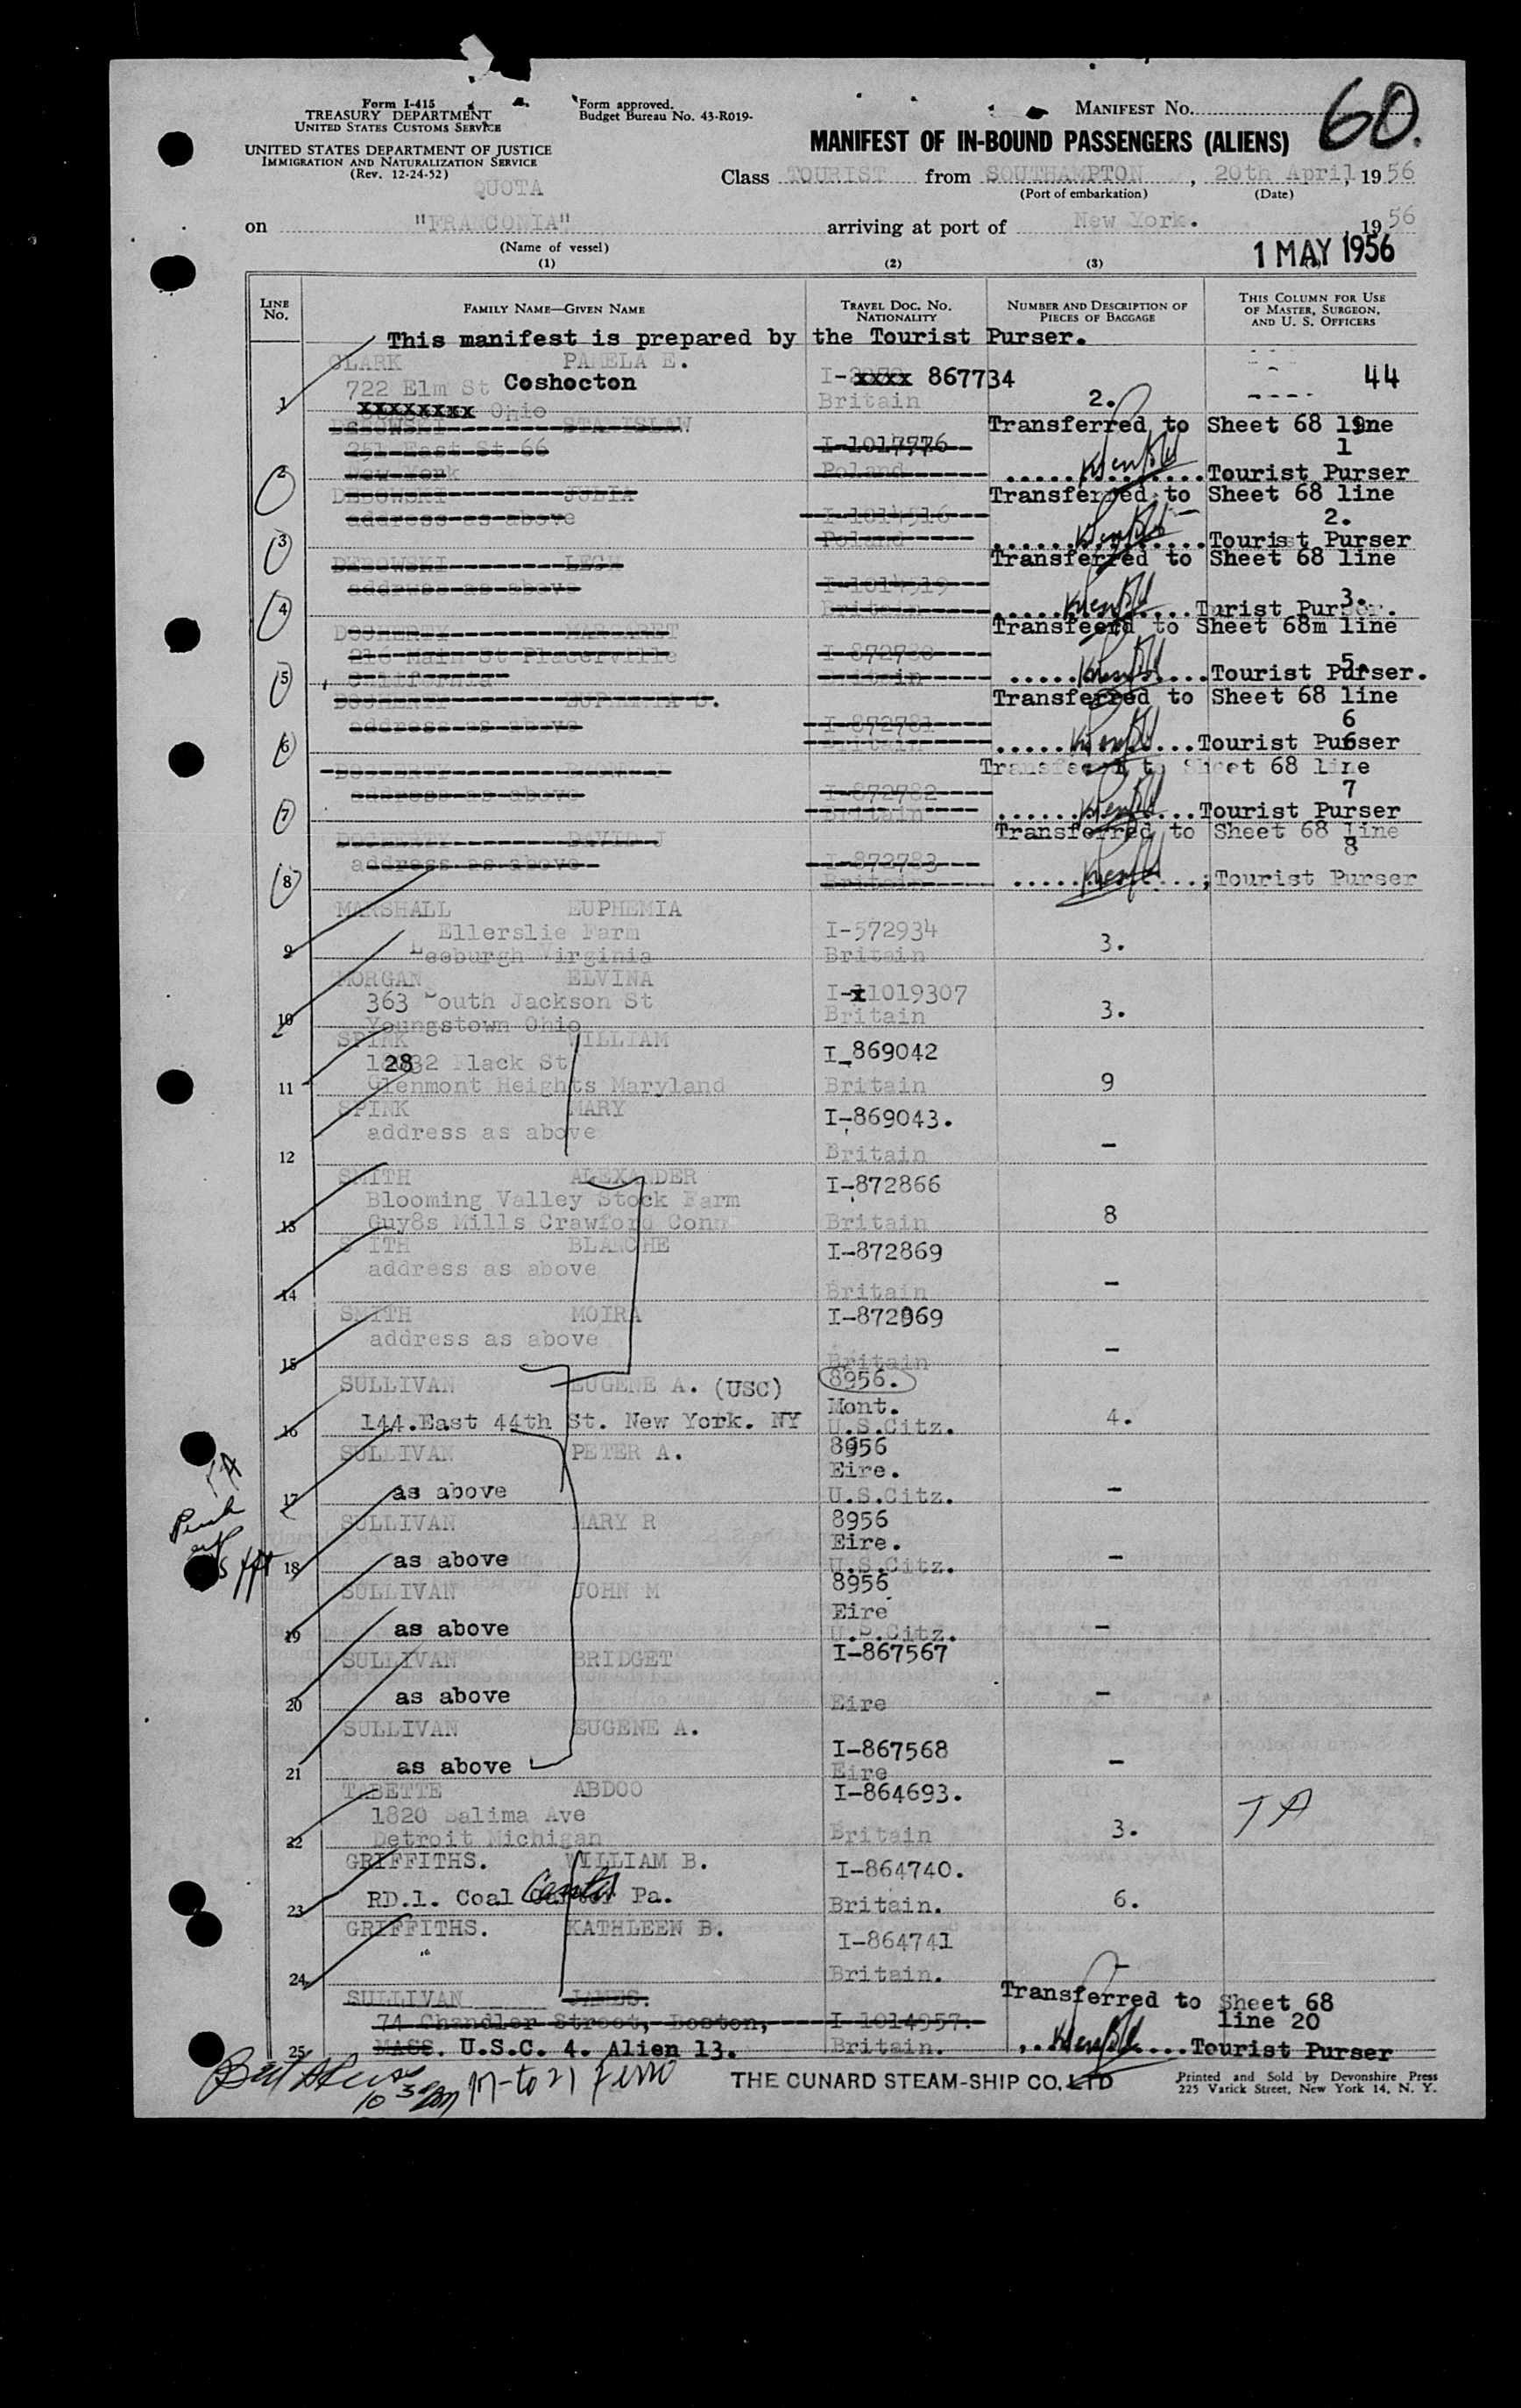 Form I-415
TREASURY DEPARTMENT
UNITED STATES CUSTOMS SERVICE
UNITED STATES DEPARTMENT OF JUSTICE
IMMIGRATION AND NATURALIZATION SERVICE
(Rev. 12-24-52)
Form approved.
Budget Bureau No. 43-R019-
MANIFEST NO. 60.
MANIFEST OF IN-BOUND PASSENGERS (ALIENS)
QUOTA
Class TOURIST from SOUTHAMPTON, 20th April, 1956
(Port of embarkation) (Date)
on "FRANCONIA" arriving at port of New York. , 1956
(Name of vessel)
1 MAY 1956
(1) (2) (3)
LINE No. FAMILY NAME—GIVEN NAME TRAVEL DOC. NO. NATIONALITY NUMBER AND DESCRIPTION OF PIECES OF BAGGAGE THIS COLUMN FOR USE OF MASTER, SURGEON, AND U. S. OFFICERS
This manifest is prepared by the Tourist Purser.
CLARK PAMELA E.
722 Elm St Coshocton I-xxxx 867734 44
1 xxxxxxxx Ohio Britain 2.
DEBOWSKI STANISLAW Transferred to Sheet 68 line
251 East St 66 I-1017776 1
2 New York Poland Tourist Purser
DEBOWSKI JULIA Transferred to Sheet 68 line
address as above I-1014516 2.
3 Poland Tourist Purser
DEBOWSKI LECH Transferred to Sheet 68 line
address as above I-1014519 3.
4 Britain Turist Purser.
DOCHERTY MARGARET Transfeerd to Sheet 68m line
216 Main St Placerville I-872780 5.
5 California Britain Tourist Purser.
DOCHERTY EUPHEMIA C. Transferred to Sheet 68 line
address as above I-872781 6
6 Britain Tourist Purser
DOCHERTY Sheet 68 line
address as above I-872782 7
7 Britain Tourist Purser
DOCHERTY DAVID J Transferred to Sheet 68 line
address as above I-872783 8
8 Britain ;Tourist Purser
MARSHALL EUPHEMIA
Ellerslie Farm I-572934
9 Leeburgh Virginia Britain 3.
MORGAN ELVINA
363 South Jackson St I-x1019307
10 Youngstown Ohio Britain 3.
SPINK WILLIAM
12832 Flack St I_869042
11 Glenmont Heights Maryland Britain 9
SPINK MARY I-869043.
address as above
12 Britain -
SMITH ALEXANDER I-872866
Blooming Valley Stock Farm
13 Guy8s Mills Crawford Conn Britain 8
SMITH BLANCHE I-872869
address as above
14 Britain -
SMITH MOIRA I-872969
address as above
15 Britain -
SULLIVAN EUGENE A. (USC) 8956.
Mont.
16 144.East 44th St. New York. NY U.S.Citz. 4.
SULLIVAN PETER A. 8956
Eire.
17 as above U.S.Citz. -
SULLIVAN MARY R 8956
Eire.
18 as above U.S.Citz. -
SULLIVAN JOHN M 8956
Eire
19 as above U.S.Citz. -
SULLIVAN BRIDGET I-867567
20 as above Eire -
SULLIVAN EUGENE A.
I-867568
21 as above Eire -
TABETTE ABDOO I-864693.
1820 Salima Ave
22 Detroit Michigan Britain 3.
GRIFFITHS. WILLIAM B. I-864740.
23 RD.1. Coal Center Pa. Britain. 6.
GRIFFITHS. KATHLEEN B. I-864741
"
24 Britain. -
SULLIVAN JAMES. Transferred to Sheet 68
74 Chandler Street, Boston, I-1014957. line 20
25 MASS. U.S.C. 4. Alien 13. Britain. Tourist Purser
17-to 21
THE CUNARD STEAM-SHIP CO, LTD
Printed and Sold by Devonshire Press
225 Varick Street, New York 14, N. Y.